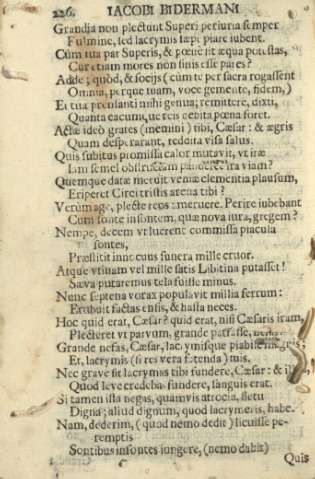 226. IACOBI BIDERMANI
Grandia non plectunt Superi periuria semper
Fulmine, sed lacrymis sæpe piare iubent.
Cùm tua par Superis, & pœnè sit æqua potestas,
Cur etiam mores non sinis esse pares?
Adde; quòd, & socijs (cùm te per sacra rogassent
Omnia, perque tuam, voce gemente, fidem,)
Et tua prensanti mihi genua; remittere, dixti,
Quanta eacunque reis debita pœna foret.
Actæ ideò grates (memini) tibi, Cæsar: & ægris
Quam desperarant, reddita visa salus.
Quis subitus promissa calor mutavit, ut iræ
Jam semel obstructam panderet ira viam?
Quemque datæ meruit veniæ clementia plausum,
Eriperet Circi tristis arena tibi?
Verùm age, plecte reos: meruere. Perire iubebant
Cum sonte insontem, quæ nova iura, gregem?
Nempe, decem ut luerent commissa piacula
sontes,
Præstitit innocuus funera mille cruor.
Atque utinam vel mille satis Libitina putasset!
Sæva putaremus tela fuisse minus.
Nunc septena vorax populavit millia ferrum:
Erubuit factas ensis, & hasta neces.
Hoc quid erat, Cæsar? quid erat, nisi Cæsaris iram,
Plecteret ut parvum, grande patrasse,
Grande nefas, Cæsar, lacrymisque piabile magnis;
Et, lacrymis (si res vera fatenda) tuis.
Nec grave sit lacrymas tibi fundere, Cæsar: &
Quod leve credebas fundere, sanguis erat.
Si tamen illa negas, quamvis atrocia, fletu
Digna; aliud dignum, quod lacrymeris, habe.
Nam, dederim, (quod nemo dedit) licuisse pe-
remptis
Sontibus insontes iungere, (nemo dabit)
Quis